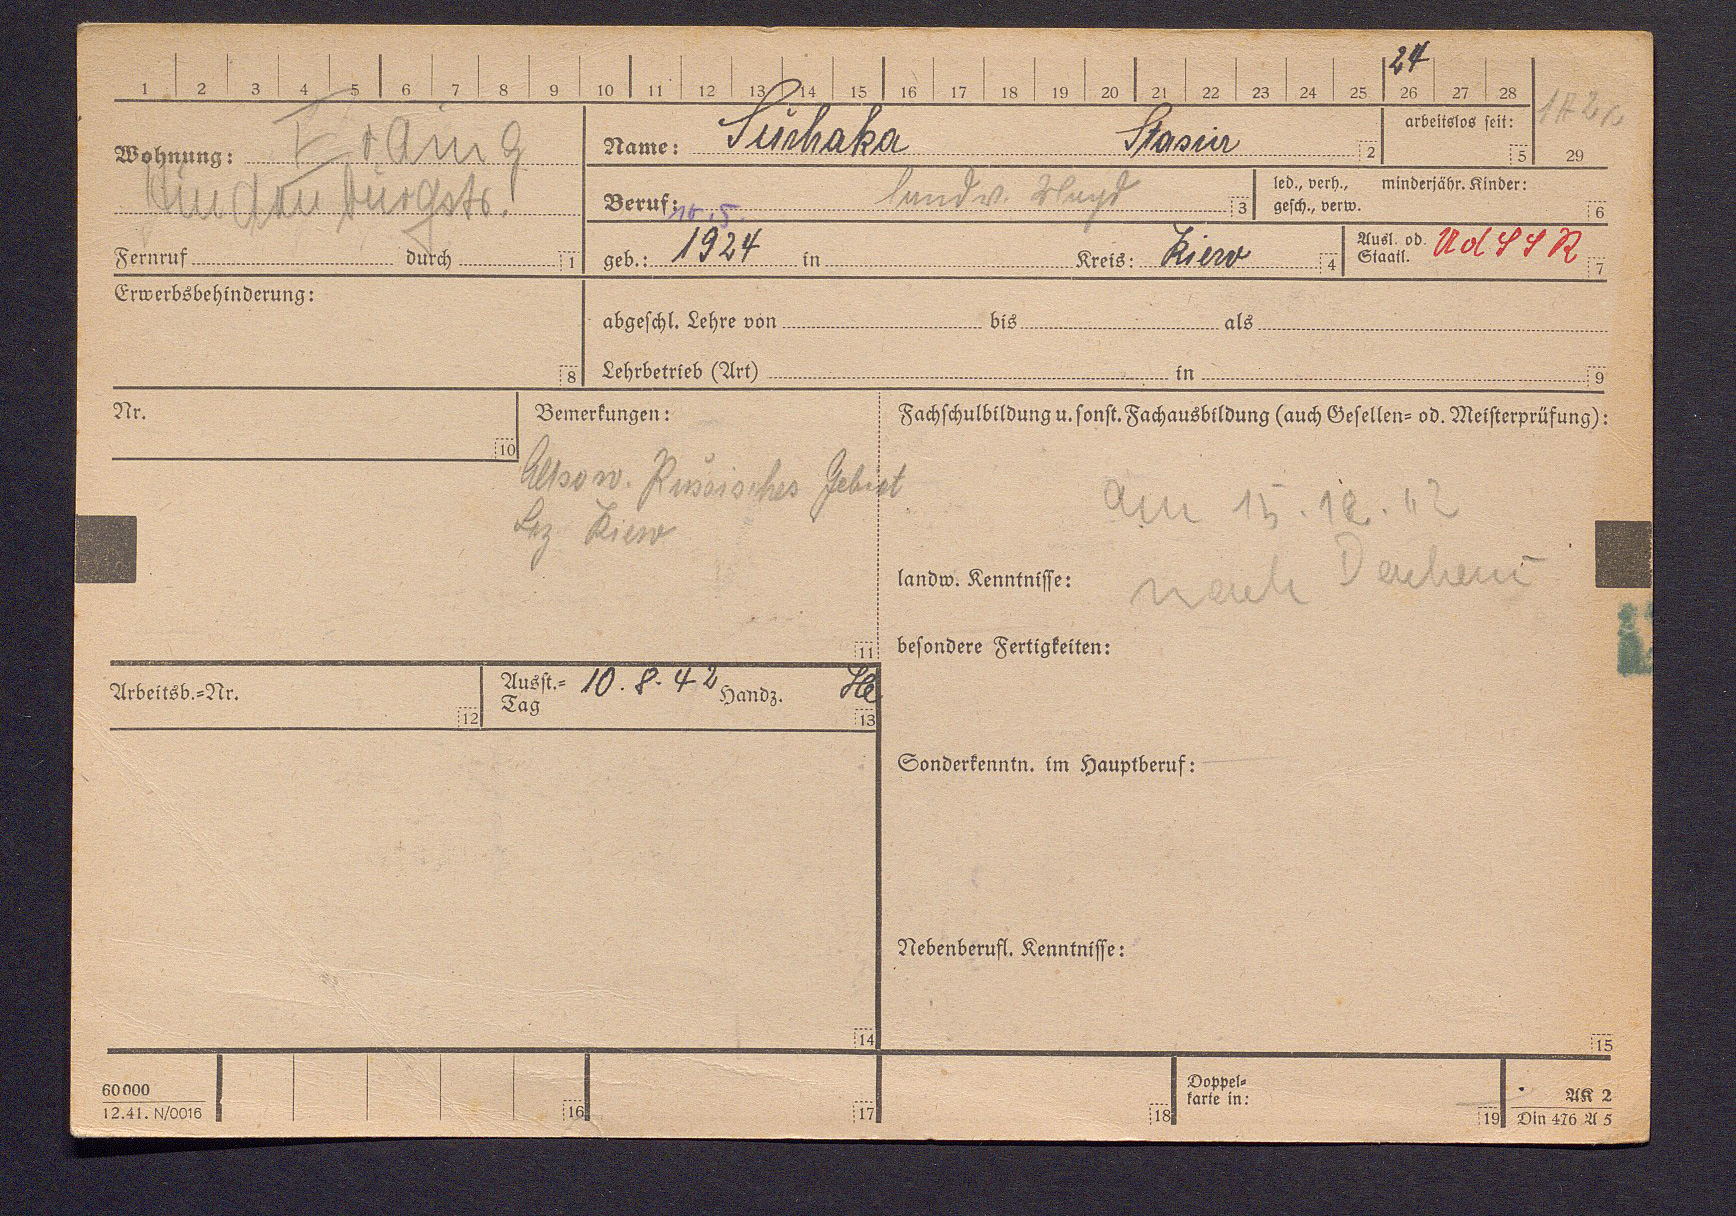 24
1 2 3 4 5 6 7 8 9 10 11 12 13 14 15 16 17 18 19 20 21 22 23 24 25 26 27 28
Wohnung:
Hindenburgstr.
Fernruf durch 1
Name: Suchaka Stasia 2
arbeitslos seit: 5
29
Beruf: landw. Magd 3
led., verh., minderjähr. Kinder:
gesch., verw. 6
geb.: 1924 in Kreis: Kiew 4
Ausl. od. UdSSR
Staatl. 7
Erwerbsbehinderung:
8
abgeschl. Lehre von bis als
Lehrbetrieb (Art) in 9
Nr.
10
Bemerkungen:
Altsow. Russisches Gebiet
Bez Kiew
11
Fachschulbildung u. sonst. Fachausbildung (auch Gesellen- od. Meisterprüfung):
am 15.12.42
nach Dachau
landw. Kenntnisse:
besondere Fertigkeiten:
Arbeitsb.-Nr. 12
Ausst.- 10.8.42 Handz. He
Tag 13
Sonderkenntn. im Hauptberuf:
Nebenberufl. Kenntnisse:
14
15
60000
12.41. N/0016
16
17
18
Doppel-
karte in: 19
AK 2
Din 476 A 5